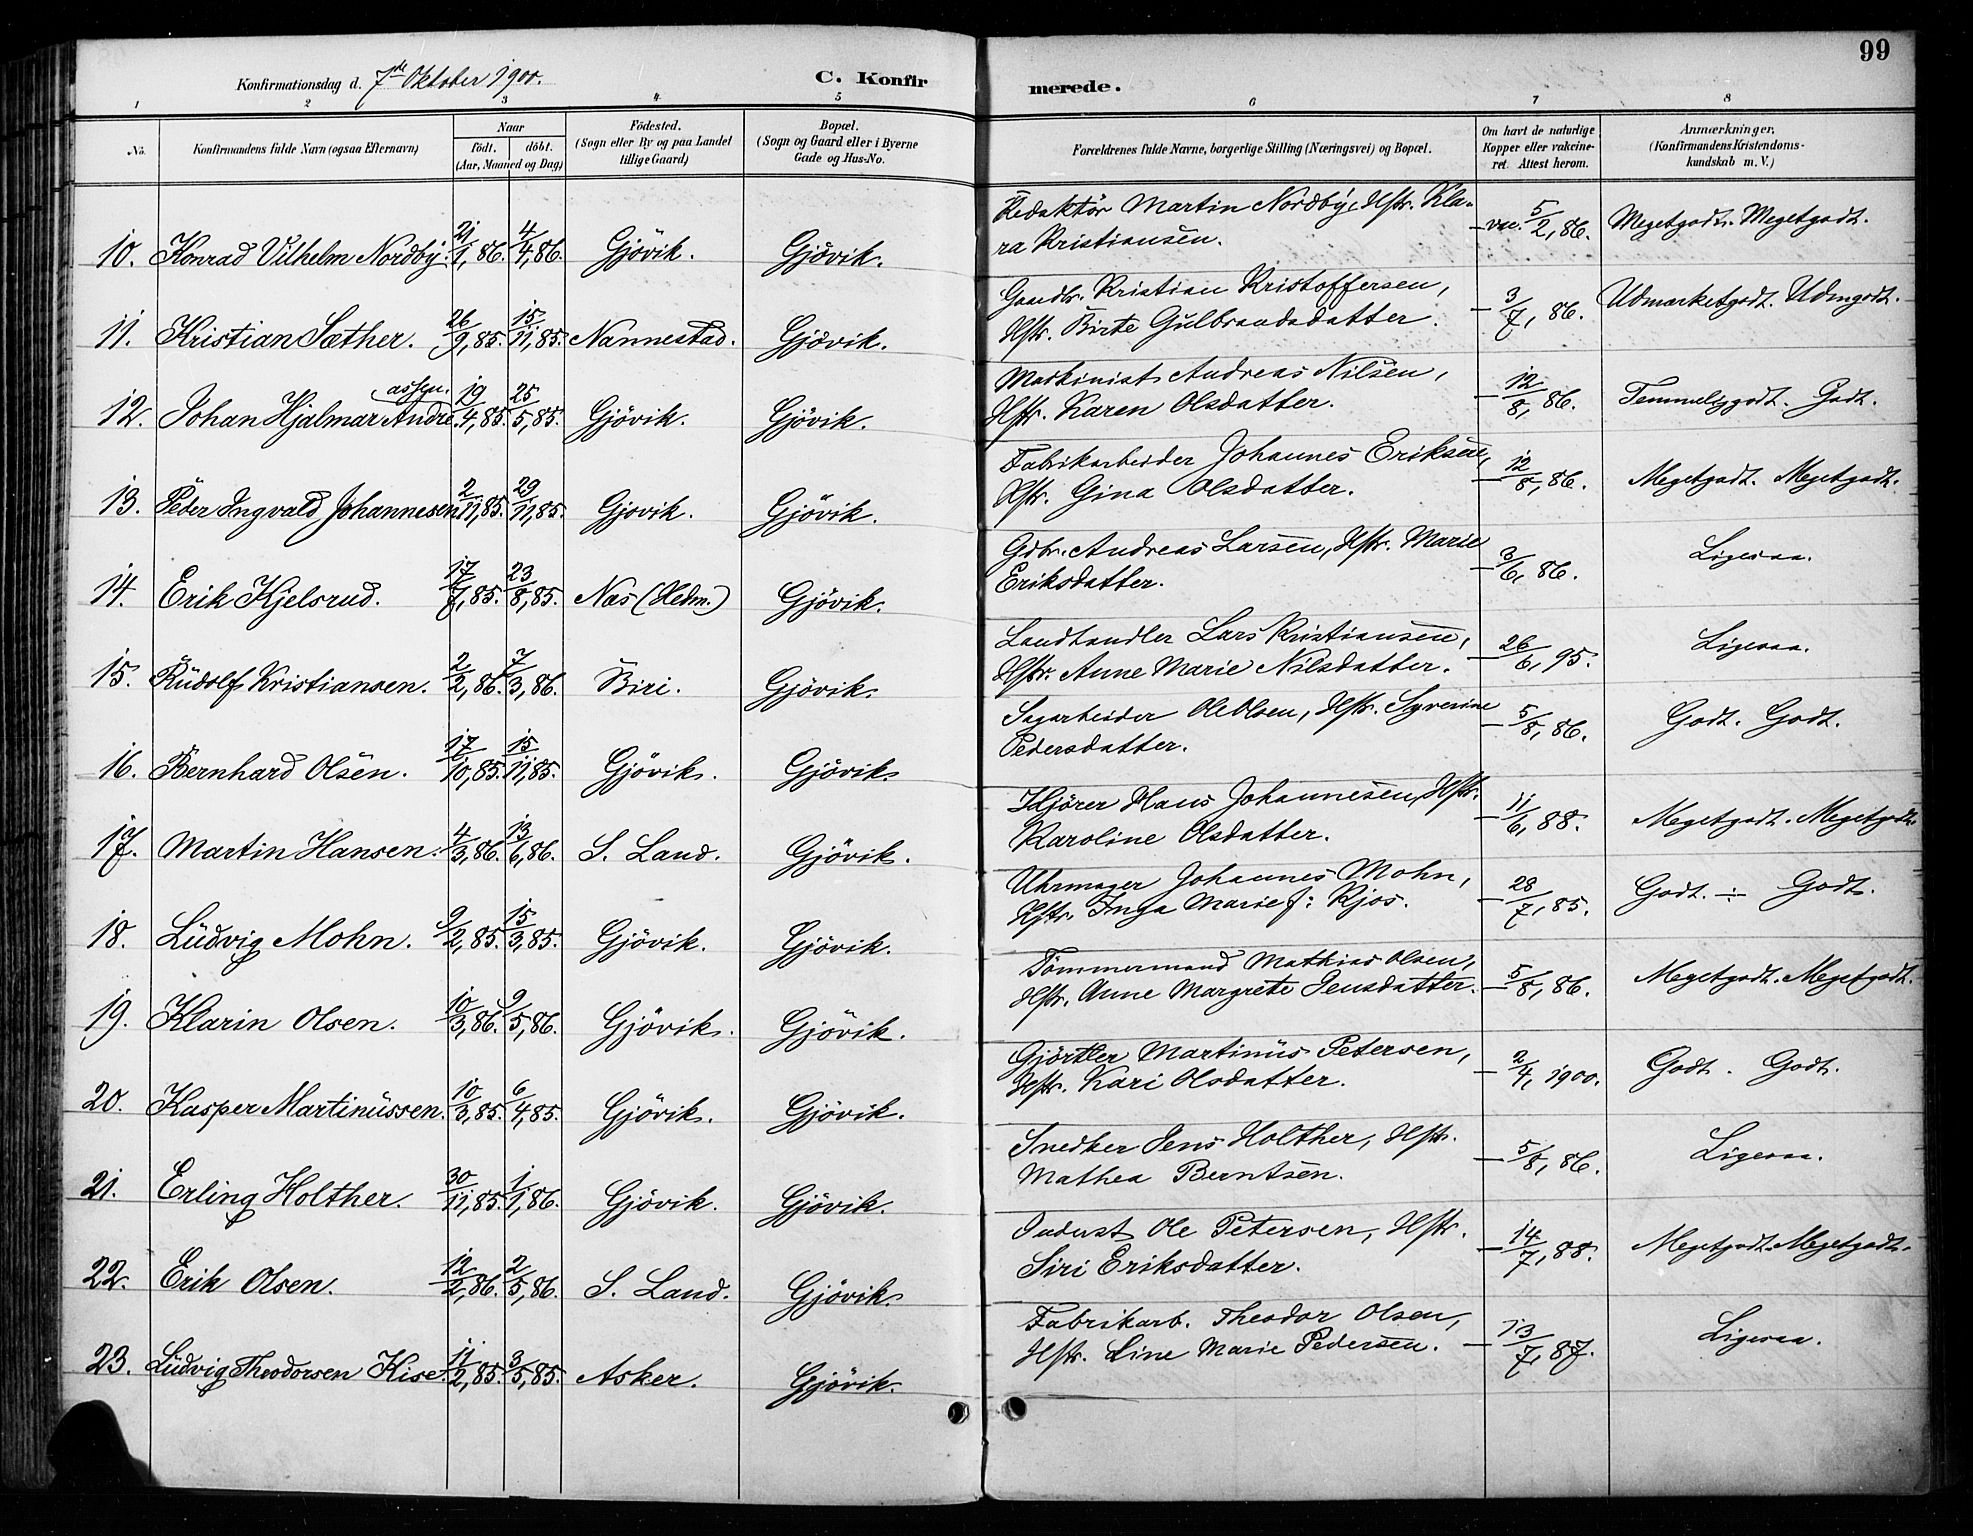 99
Konfirmationsdag d. 7de Oktober 1900.
C. Konfirmerede.
1 2 3 4 5 6 7 8
No. Konfirmandens fulde Navn (ogsaa Efternavn) Naar födt. döbt. (Aar, Maaned og Dag) Födested. (Sogn eller By og paa Landet tillige Gaard) Bopæl. (Sogn og Gaard eller i Byerne Gade og Hus-No. Forældrenes fulde Navne, borgerlige Stilling (Næringsvei) og Bopæl. Om havt de naturlige Kopper eller vakcineret. Attest herom. Anmærkninger, (Konfirmandens Kristendomskundskab m. V.)
10. Konrad Vilhelm Nordby. 21/1, 86. 4/4, 86. Gjövik. Gjövik. Redaktör Martin Nordby, Hstr. Klara Kristiansen. vac. 5/2, 86. Megetgodt. Megetgodt.
11. Kristian Sæther. 26/9, 85. 15/11, 85. Nannestad. Gjövik. Gaardbr. Kristian Kristoffersen, Hstr. Birte Gulbrandsdatter. — 3/7, 86. Udmærketgodt. Udmgodt.
12. Johan Hjalmar Andreassen. 19/4, 85. 25/5, 85. Gjövik. Gjövik. Maskinist Andreas Nilsen, Hstr. Karen Olsdatter. — 12/8, 86. Temmeliggodt. Godt.
13. Peder Ingvald Johannesen 2/11, 85. 29/11, 85. Gjovik. Gjövik. Fabrikarbeider Johannes Eriksen, Hstr. Gina Olsdatter. — 12/8, 86. Megetgodt. Megetgodt.
14. Erik Hjelsrud. 17/7, 85. 23/8, 85. Næs (Hedm.) Gjövik. Gdbr. Andreas Larsen, Hstr. Marie Eriksdatter. — 3/6, 86. Ligesaa.
15. Rudolf Kristiansen. 2/2, 86. 7/3, 86. Biri. Gjövik. Landhandler Lars Kristiansen, Hstr. Anne Marie Nilsdatter. — 26/6, 95. Ligesaa.
16. Bernhard Olsen. 17/10, 85. 15/11, 85. Gjövik. Gjövik. Sagarbeider Ole Olsen, Hstr. Syverine Pedersdatter. — 5/8, 86. Godt. Godt.
17. Martin Hansen. 4/3, 86. 13/6, 86. S. Land. Gjövik. Kjörer Hans Johannesen, Hstr. Karoline Olsdatter. — 11/6, 88. Megetgodt. Megetgodt.
18. Ludvig Mohn. 9/2, 85. 15/3, 85. Gjövik. Gjövik. Uhrmager Johannes Mohn, Hstr. Inga Marie f: Kjos. — 28/7, 85. Godt. ÷ Godt.
19. Klarin Olsen. 10/3, 86. 9/5, 86. Gjövik. Gjövik. Tömmermand Mathias Olsen, Hstr. Anne Margrete Jensdatter. — 5/8, 86. Megetgodt. Megetgodt.
20. Kasper Martinussen. 10/3, 85. 6/4, 85. Gjövik. Gjövik. Gjörtler Martinus Petersen, Hstr. Kari Olsdatter. — 2/4, 1900. Godt. Godt.
21. Erling Holther. 30/11, 85. 1/1, 86. Gjövik. Gjövik. Snedker Jens Holther, Hstr. Mathea Berntsen. — 5/8, 86. Ligesaa.
22. Erik Olsen. 12/2, 86. 2/5, 86. S. Land. Gjövik. Inderst Ole Petersen, Hstr. Siri Eriksdatter. — 14/7, 88. Megetgodt. Megetgodt.
23. Ludvig Theodorsen Kise. 11/2, 85. 3/5, 85. Asker. Gjövik. Fabrikarb. Theodor Olsen, Hstr. Line Marie Pedersen. — 13/7, 87. Ligesaa.